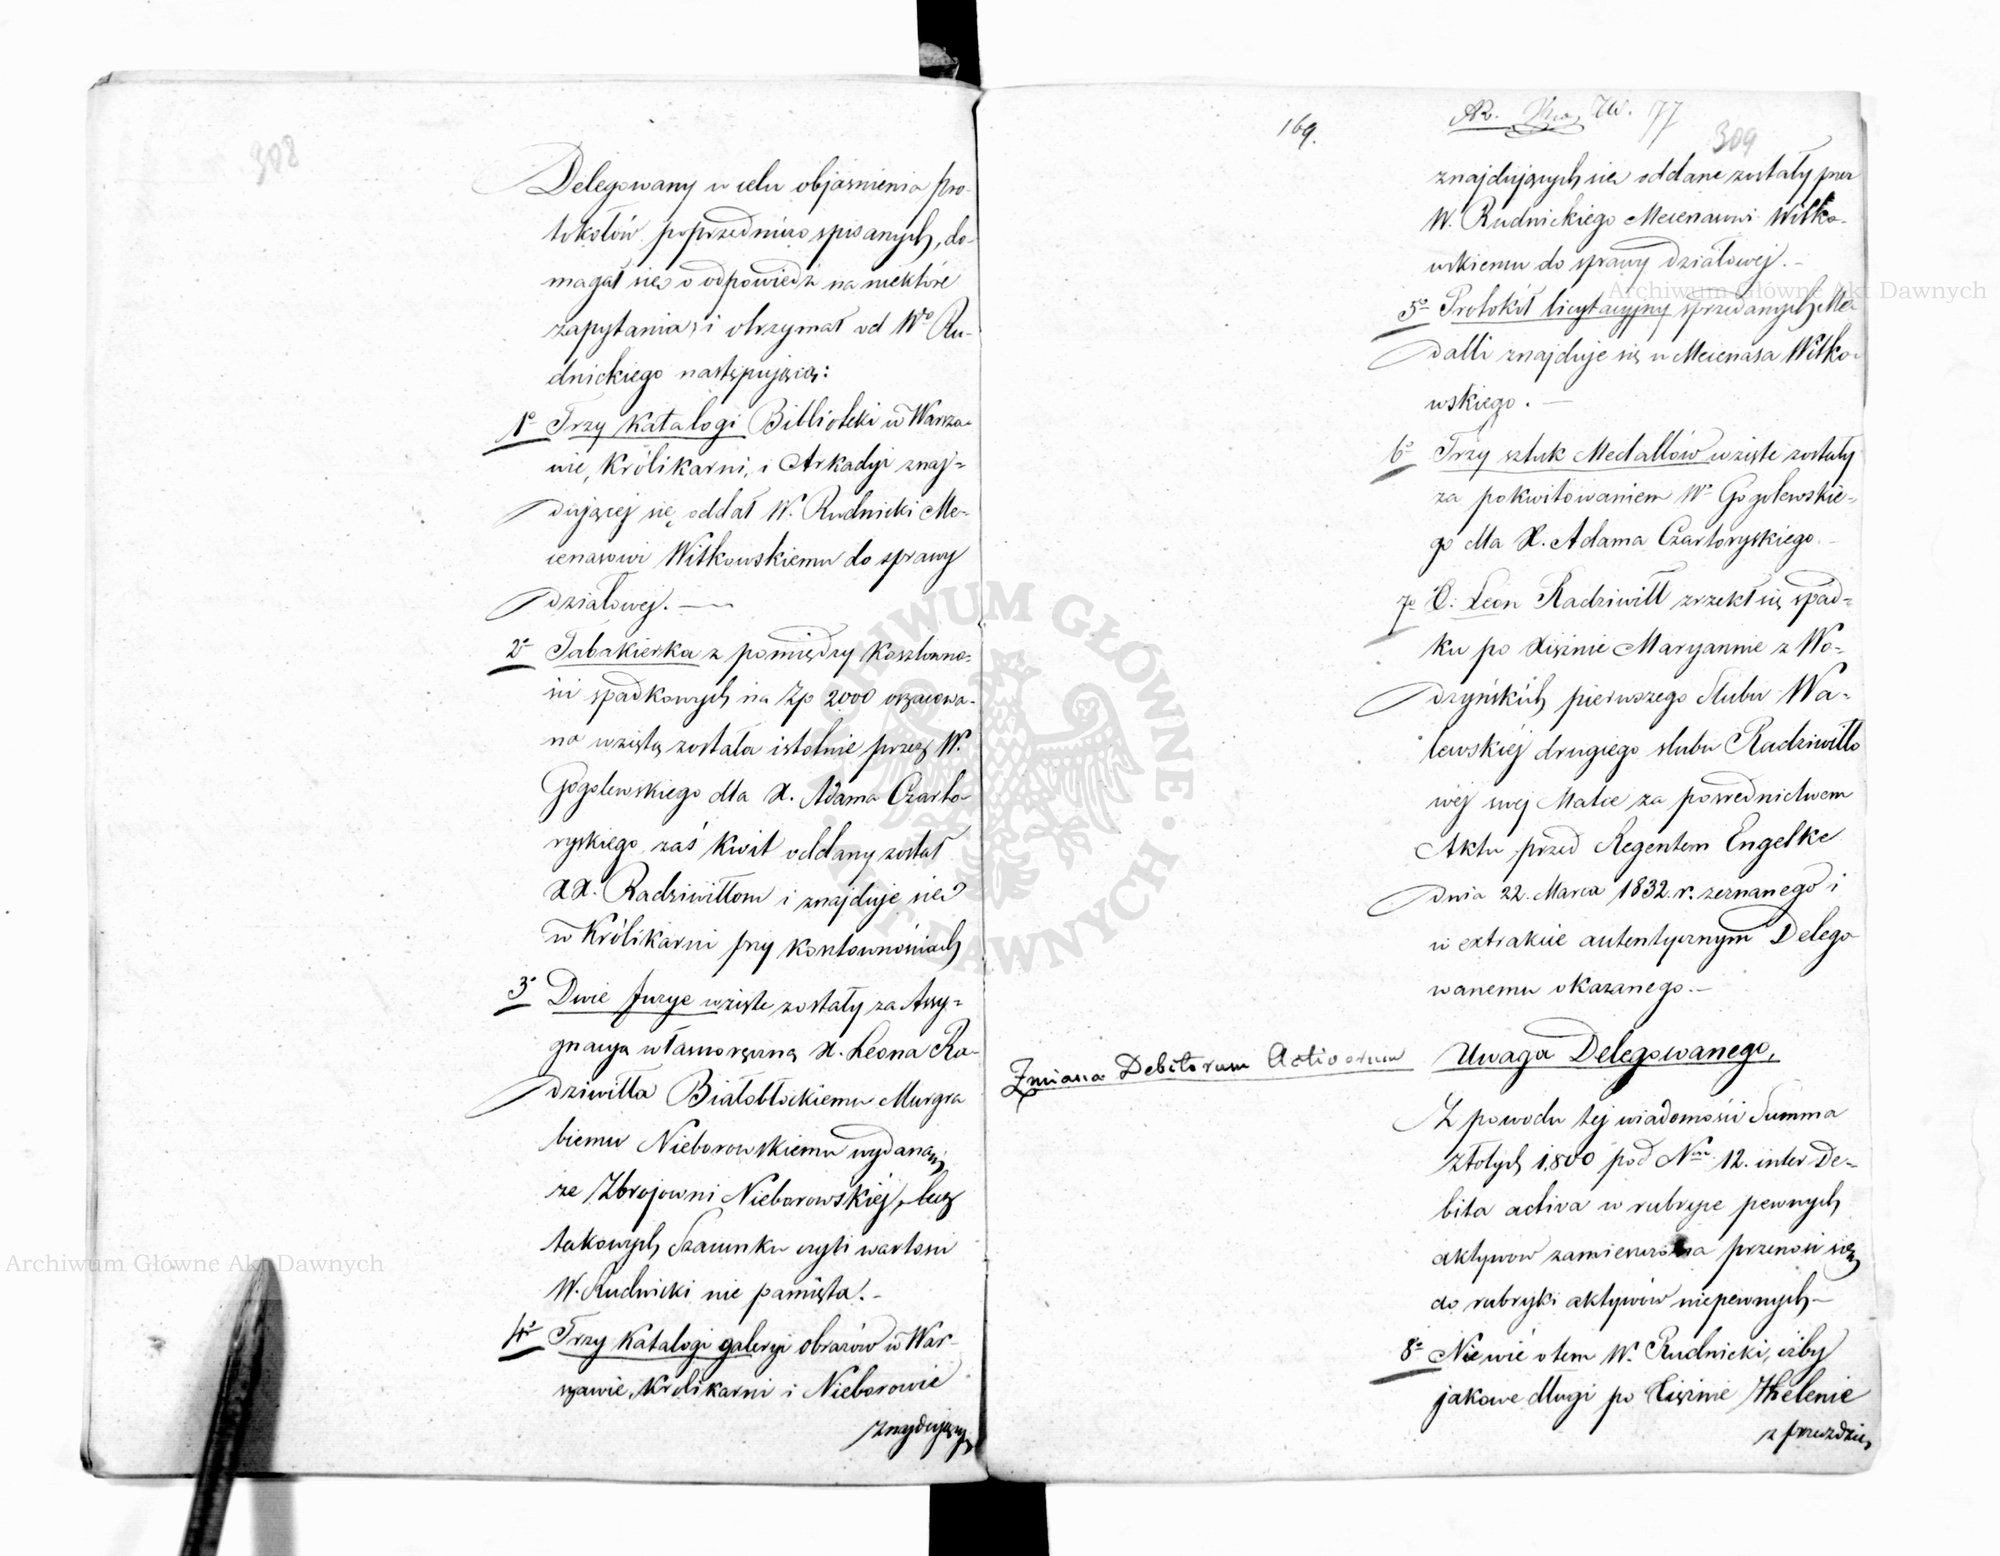 308
Delegowany w celu objaśnienia pro-
tokołów poprzedniczo spisanych, do-
magał się o odpowiedź na niektóre
zapytania, i otrzymał od Wo Ru-
dnickiego następującą:
1o Trzy katalogi Biblioteki w Warsza-
wie, Królikarni, i Arkadyi znaj-
dującej się, oddał W. Rudnicki Me-
cenasowi Witkowskiemu do sprawy
działowej. —
2o Tabakierka z pomiędzy kosztowno-
ści spadkowych na Zp 2000 oszacowa-
na wziętą została istotnie przez W.
Gogolewskiego dla X. Adama Czarto-
ryskiego, zaś kwit oddany został
XX. Radziwiłłom i znajduje się
w Królikarni przy kosztownościach
3o Dwie fuzye wzięte zostały za Assy-
gnacyą własnoręczną X. Leona Ra-
dziwiłła Białobłockiemu Murgra
biemu Nieborowskiemu wydaną,
ze Zbrojowni Nieborowskiéj, lecz
takowych Szacunku czyli wartości
W. Rudnicki nie pamięta. –
4o Trzy katalogi galeryi obrazów w War-
szawie, Królikarni i Nieborowie
znajdujących
169.
309
znajdujących się oddane zostały przez
W. Rudnickiego Mecenasowi Witko-
wskiemu do sprawy działowej. –
5o Protokół licytacyjny sprzedanych Me
dalli znajduje się u Mecenasa Witko-
wskiego. —
6o Trzy sztuk Medallów wzięte zostały
za pokwitowaniem Wo Gogolewskie-
go dla X. Adama Czartoryskiego. –
7o X: Leon Radziwiłł zrzekł się spad-
ku po Xiężnie Maryannie z Wo-
dzyńskich pierwszego ślubu Wa-
lewskiéj drugiego ślubu Radziwiłło
wéj swéj Matce za pośrednictwem
Aktu przed Regentem Engelke
dnia 22. Marca 1832. r. zeznanego i
w extrakcie autentycznym Delego
wanemu okazanego. –
Zmiana Debitorum Activorum
Uwaga Delegowanego,
Z powodu tej wiadomości Summa
złotych 1,800 pod Nm 12. inter De-
bita activa w rubryce pewnych
aktywow zamieszczona przenosi się
do rubryki aktywów niepewnych –
8o Nie wie o tem W. Rudnicki, iżby
jakowe długi po Xiężnie Helenie
z Przeździec
Archiwum Główne Akt Dawnych
Archiwum Główne Akt Dawnych
ARCHIWUM GŁÓWNE AKT DAWNYCH